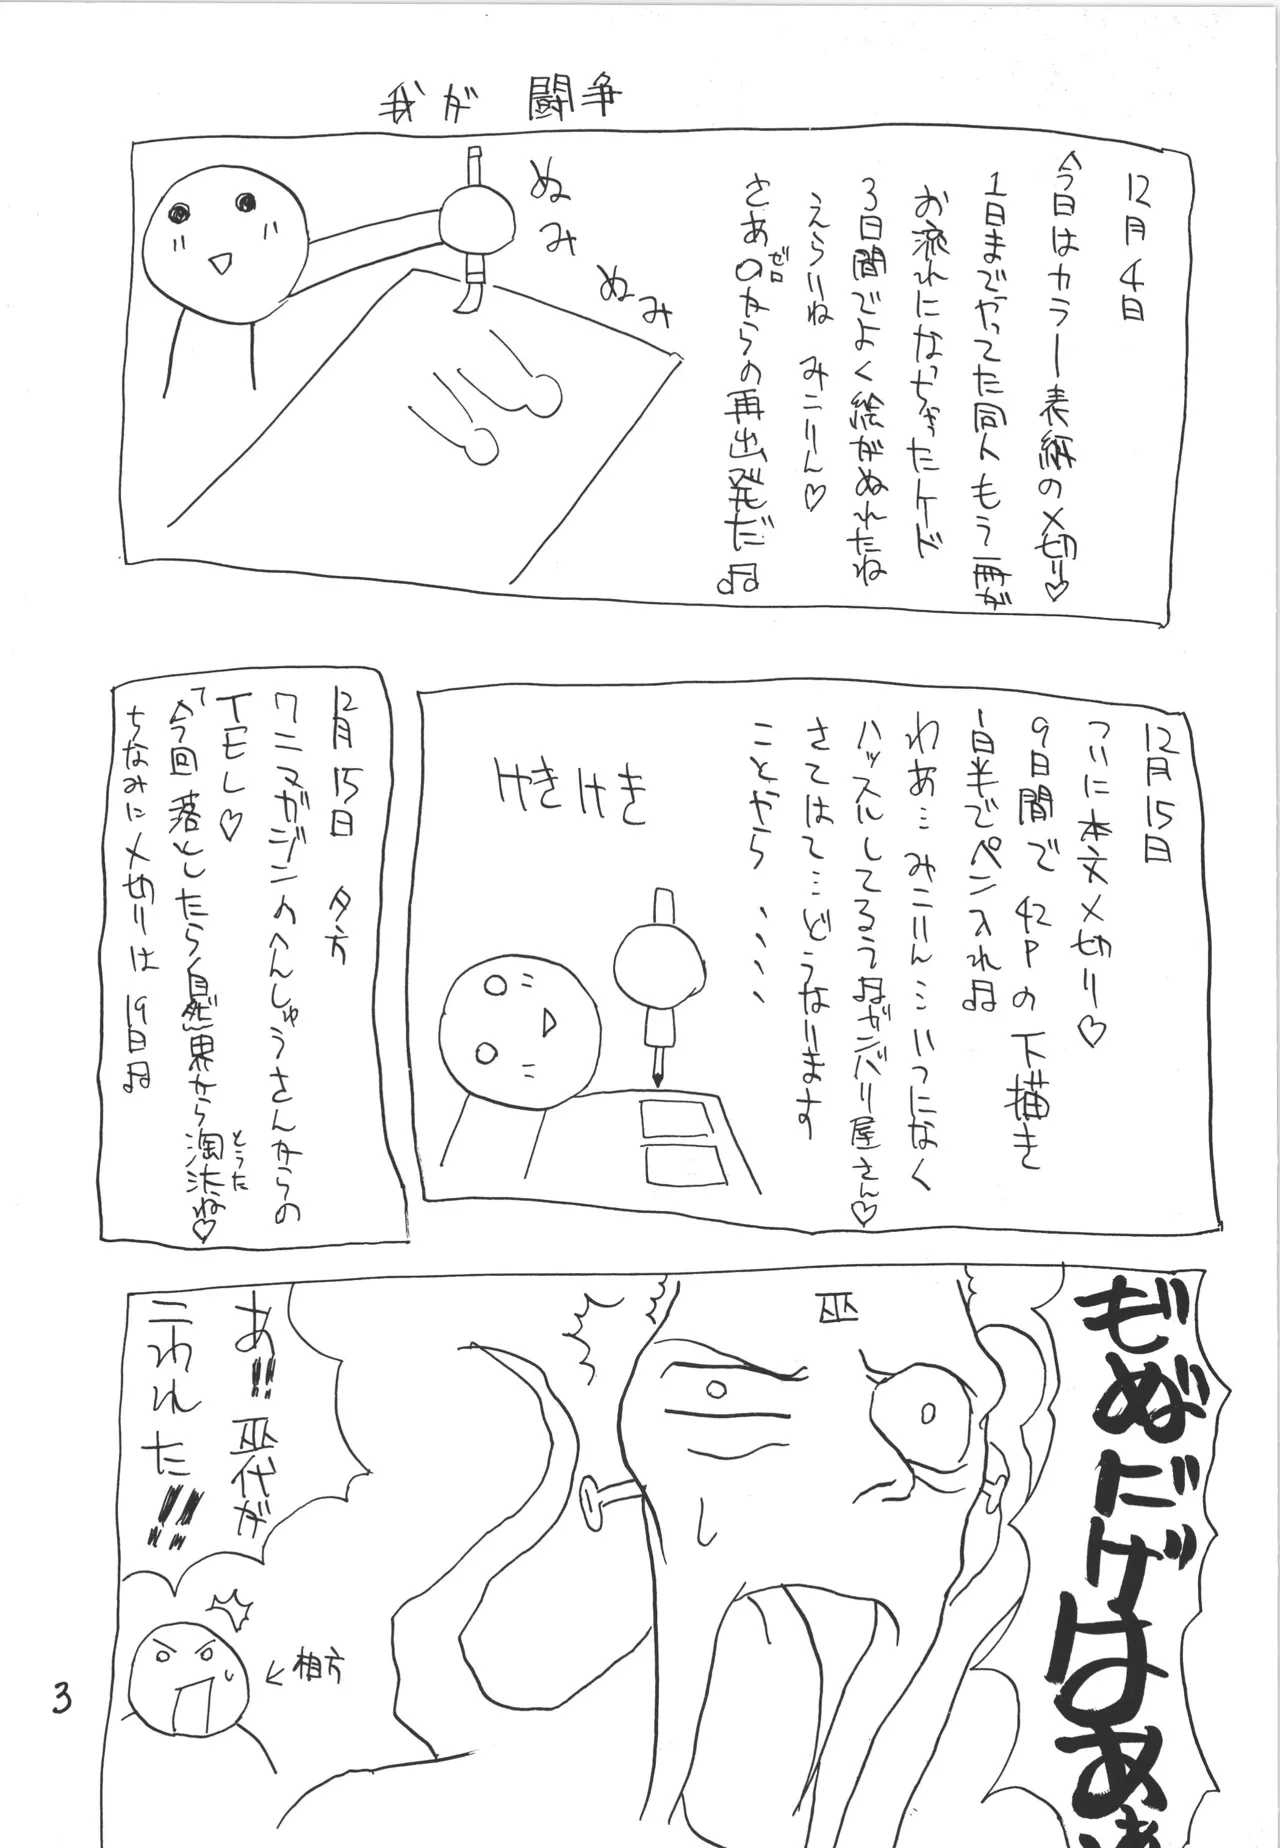 我が 闘争
12月4日
今日はカラー表紙の〆切り♡
1日までやってた同人もう一冊が
お流れになっちゃったケド
3日間でよく絵がぬれたね
えらいね みこりん♡
さあ0からの再出発だ♫
ゼロ
ぬみ
ぬみ
12月15日
ついに本文〆切り♡
9日間で42Pの下描き
一日半でペン入れ♫
わあ… みこりん… いつになく
ハッスルしてるう♫ガンバリ屋さん♡
さてはて…どうなります
ことやら、、、、
けきけき
12月15日 夕方
ワニマガジンのへんしゅうさんからの
TEL♡
「今回落としたら自然界から淘汰ね♡
とうた
ちなみに〆切りは19日♫
もぬだげはあ
巫
あ!! 巫代が
こわれた!!
←相方
3